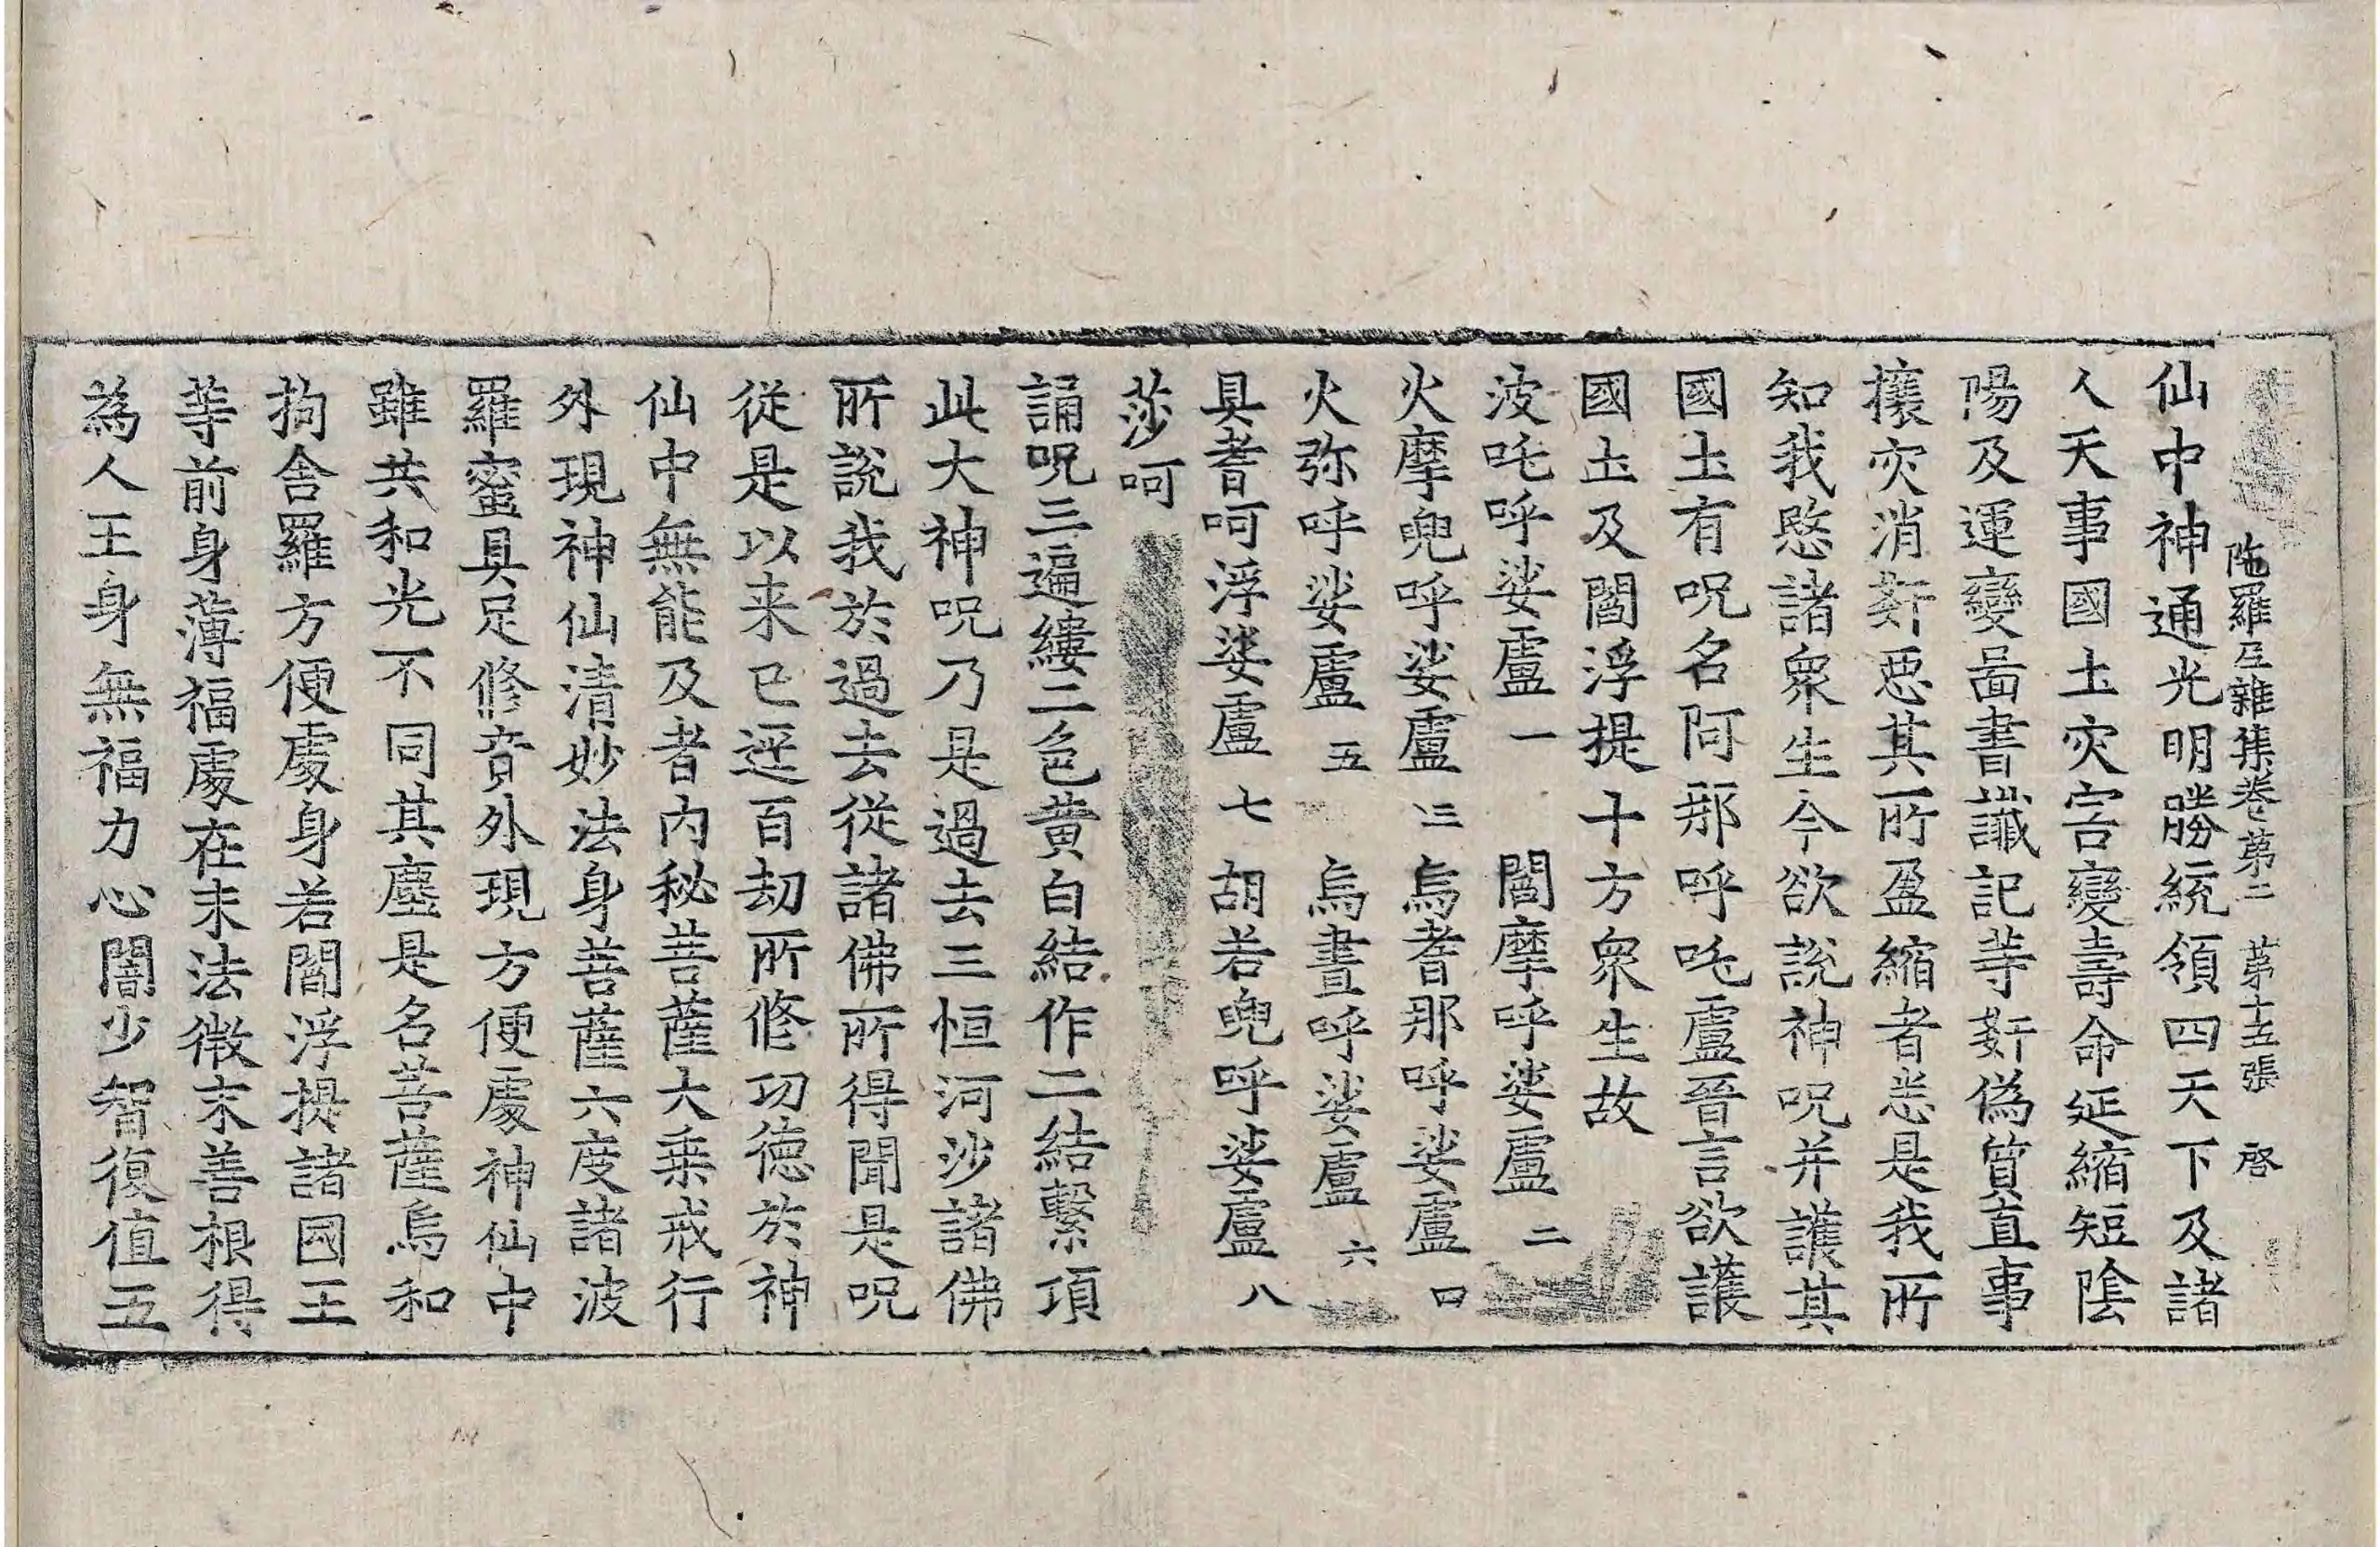 陁羅尼雜集卷第二　第十五張　啓
仙中神通光明勝統領四天下及諸
人天事國土灾害變壽命延縮短陰
陽及運變啚書讖記等姧偽質直事
攘灾消姧惡其所盈縮者悉是我所
知我愍諸衆生今欲說神呪并護其
國土有呪名阿那呼吒盧晉言欲護
國土及閻浮提十方衆生故
波吒呼娑盧一　閻摩呼娑盧二
火摩兜呼娑盧三　烏耆那呼娑盧四
火弥呼娑盧五　烏晝呼娑盧六
具耆呵浮娑盧七　胡若兜呼娑盧八
莎呵
誦呪三遍縷二色黃白結作二結繫項
此大神呪乃是過去三恒河沙諸佛
所說我於過去從諸佛所得聞是呪
從是以来已逕百劫所修功德於神
仙中無能及者內秘菩薩大乗戒行
外現神仙清妙法身菩薩六度諸波
羅蜜具足修育外現方便處神仙中
雖共和光不同其塵是名菩薩烏和
拘舍羅方便處身若閻浮提諸國王
等前身薄福處在末法微末善根得
為人王身無福力心闇少智復值五